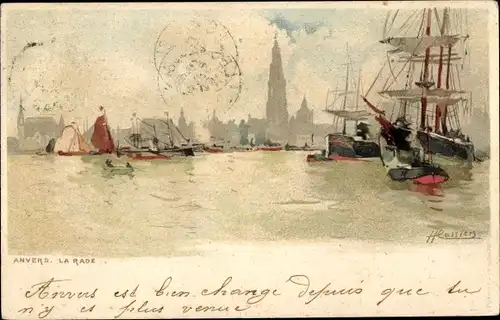 HCassiers
ANVERS. LA RADE
Anvers est bien change depuis que tu
n'y es plus venue